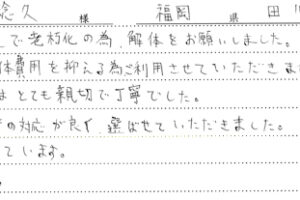 久 様 福岡 県 田川
で老朽化の為、解体をお願いしました。
体費用を抑える為ご利用させていただきま
はとても親切で丁寧でした。
の対応が良く、選ばせていただきました。
ています。